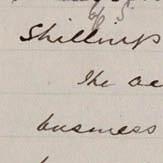 of S.
Shillings
the ac
business